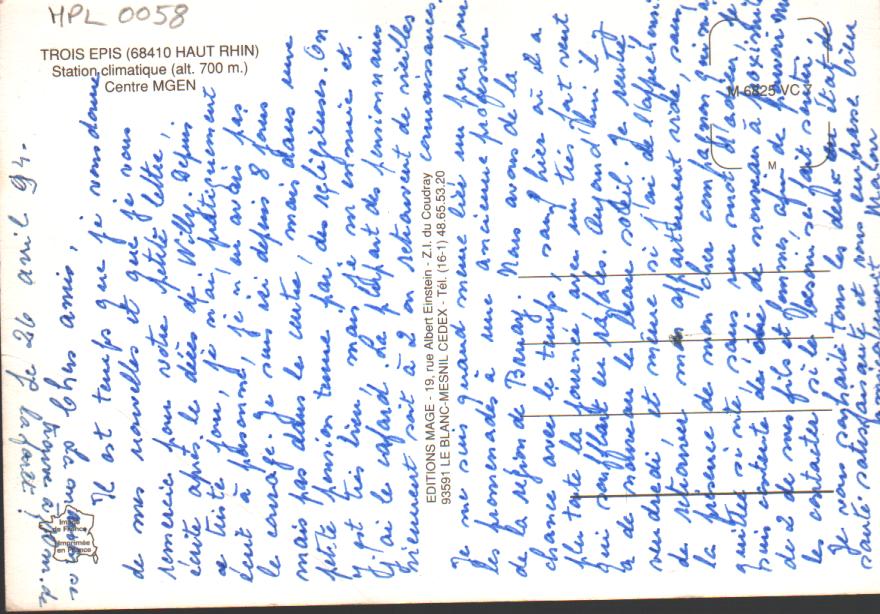 MPL 0058
TROIS EPIS (68410 HAUT RHIN)
Station climatique (alt. 700 m.)
Centre MGEN
M 6825 VC 7
M
Image
de France
Imprimée
en France
EDITIONS MAGE - 19, rue Albert Einstein - Z.I. du Coudray
93591 LE BLANC-MESNIL CEDEX - Tél. (16-1) 48.65.53.20
Le 26 avril 94.
Chers amis,
Il est temps que je vous donne
de mes nouvelles et que je vous
remercie pour votre petite lettre,
écrite après le décès de Willy. Depuis
ce triste jour, je n'ai pratiquement
écrit à personne, je n'en avais pas
le courage. Je suis ici depuis 8 jours
mais pas dans le centre, mais dans une
petite pension tenue par des religieuses. On
y est très bien, mais je m'ennuie et
j'ai le cafard. La plupart des pensionnaires
viennent soit à 2 ou retrouvent de vieilles
connaissances.
Je me suis quand même liée un peu pour
les promenades à une ancienne professeur
de la région de Bruay. Nous avons de la
chance avec le temps, sauf hier où il a
plu toute la journée avec un très fort vent
qui soufflait en rafales. Aujourd'hui il y
a de nouveau le beau soleil. Je rentre
vendredi, et même si j'ai de l'appréhension
de retrouver mon appartement vide, sans
la présence de mon cher compagnon qui m'a
quittée si vite sans un mot d'adieu, je
suis contente de être de nouveau à proximité
de 2 de mes fils et amies, afin de pouvoir
les contacter si le besoin se fait sentir.
Je vous souhaite tous les deux en état de
santé satisfaisante et vous embrasse bien